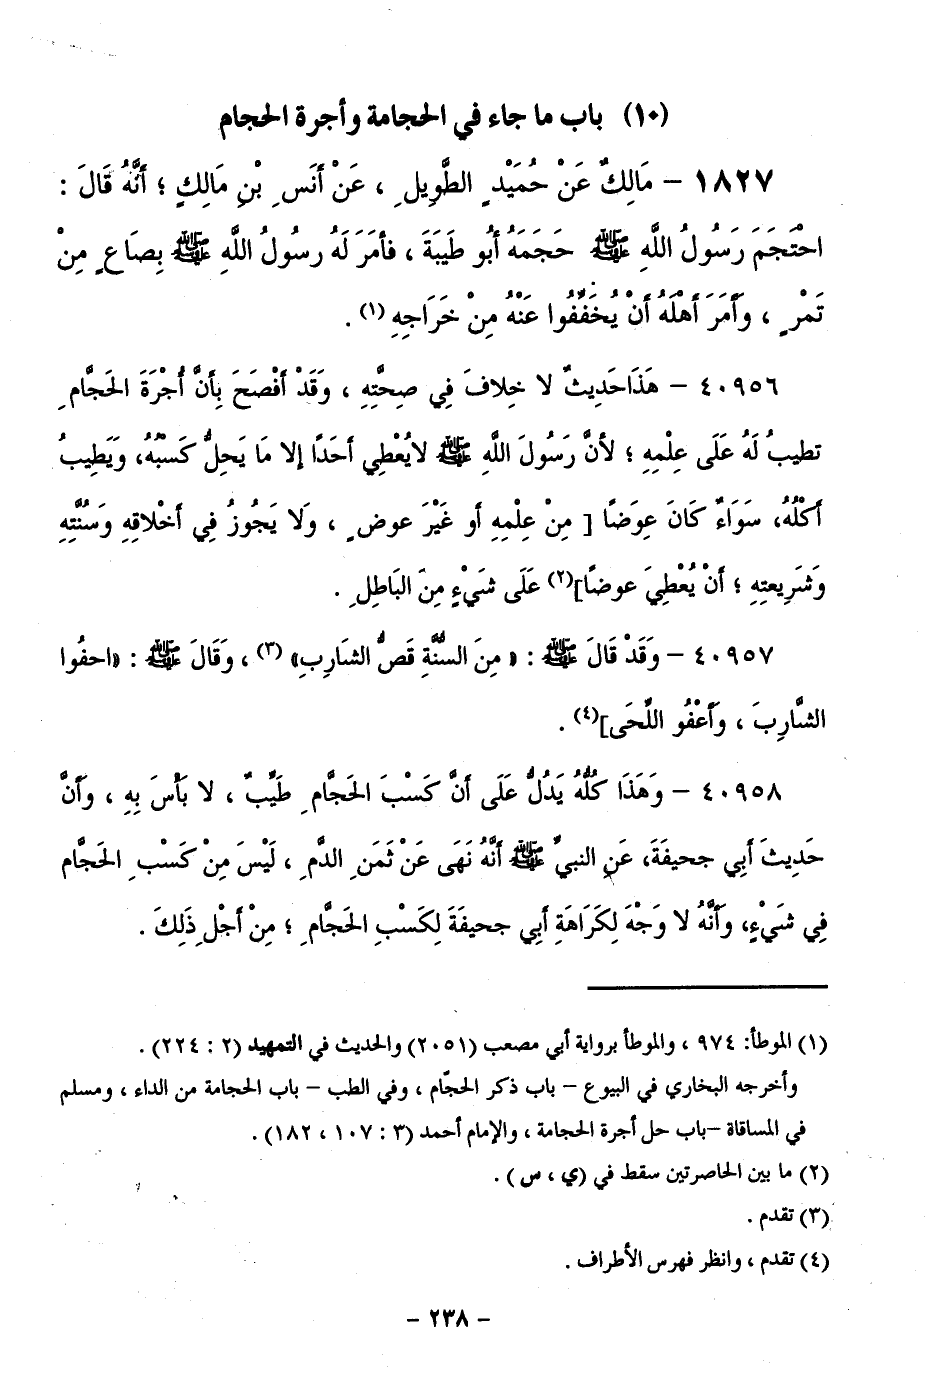 (١٠) باب ما جاء في الحجامة وأجرة الحجام
١٨٢٧ – مَالِكٌ عَنْ حُمَيْدٍ الطَّوِيلِ ، عَنْ أَنَسِ بْنِ مَالِكٍ ؛ أَنَّهُ قَالَ :
احْتَجَمَ رَسُولُ اللَّهِ ﷺ حَجَمَهُ أَبُو طَيبَةَ ، فأمَرَ لَهُ رسُولُ اللَّهِ ﷺ بِصَاعٍ مِنْ
تَمْرٍ ، وَأَمَرَ أَهْلَهُ أَنْ يُخَفِّفُوا عَنْهُ مِنْ خَرَاجِهِ (١) .
٤٠٩٥٦ – هَذَا حَدِيثٌ لا خلافَ فِي صِحَّتِهِ ، وَقَدْ أَفْصَحَ بِأَنَّ أُجْرَةَ الحَجَّامِ
تطيبُ لَهُ عَلَى عِلْمِهِ ؛ لأنَّ رَسُولَ اللَّهِ ﷺ لايُعْطِي أحَدًا إلا مَا يَحِلُّ كَسْبُهُ، وَيَطِيبُ
أَكْلُهُ، سَوَاءٌ كَانَ عِوَضًا [ مِنْ عِلْمِهِ أو غَيْرَ عوضٍ ، ولَا يَجُوزُ فِي أخْلاقِهِ وَسُنَّتِهِ
وَشَرِيعتِهِ ؛ أَنْ يُعْطِيَ عوضًا](٢) عَلَى شَيْءٍ مِنَ البَاطِلِ .
٤٠٩٥٧ – وَقَدْ قَالَ ﷺ : « مِنَ السُّنَّةِ قَصُّ الشارِبِ» (٣) ، وَقَالَ ﷺ : «احفُوا
الشَّارِبَ ، وَأَعْفُو اللِّحَى](٤) .
٤٠٩٥٨ – وَهَذَا كُلُّهُ يَدُلُّ عَلَى أَنَّ كَسْبَ الحَجَّامِ طَيِّبٌ ، لا بَأْسَ بِهِ ، وأنَّ
حَدِيثَ أَبِي جحيفَةَ، عَنِ النبيِّ ﷺ أَنَّهُ نَهَى عَنْ ثَمَنِ الدَّمِ ، لَيْسَ مِنْ كَسْبِ الحَجَّام
فِي شَيْءٍ، وَأَنَّهُ لا وَجْهَ لِكَرَاهَةِ أَبِي جحيفَةَ لِكَسْبِ الحَجَّامِ ؛ مِنْ أَجْلِ ذَلِكَ .
(١) الموطأ: ٩٧٤ ، والموطأ برواية أبي مصعب (٢٠٥١) والحديث في التمهيد (٢ : ٢٢٤) .
وأخرجه البخاري في البيوع – باب ذكر الحجّام ، وفي الطب – باب الحجامة من الداء ، ومسلم
في المساقاة –باب حل أجرة الحجامة ، والإمام أحمد (٣ : ١٠٧ ، ١٨٢) .
(٢) ما بين الحاصرتين سقط في (ي ، س) .
(٣) تقدم .
(٤) تقدم ، وانظر فهرس الأطراف .
- ٢٣٨ -